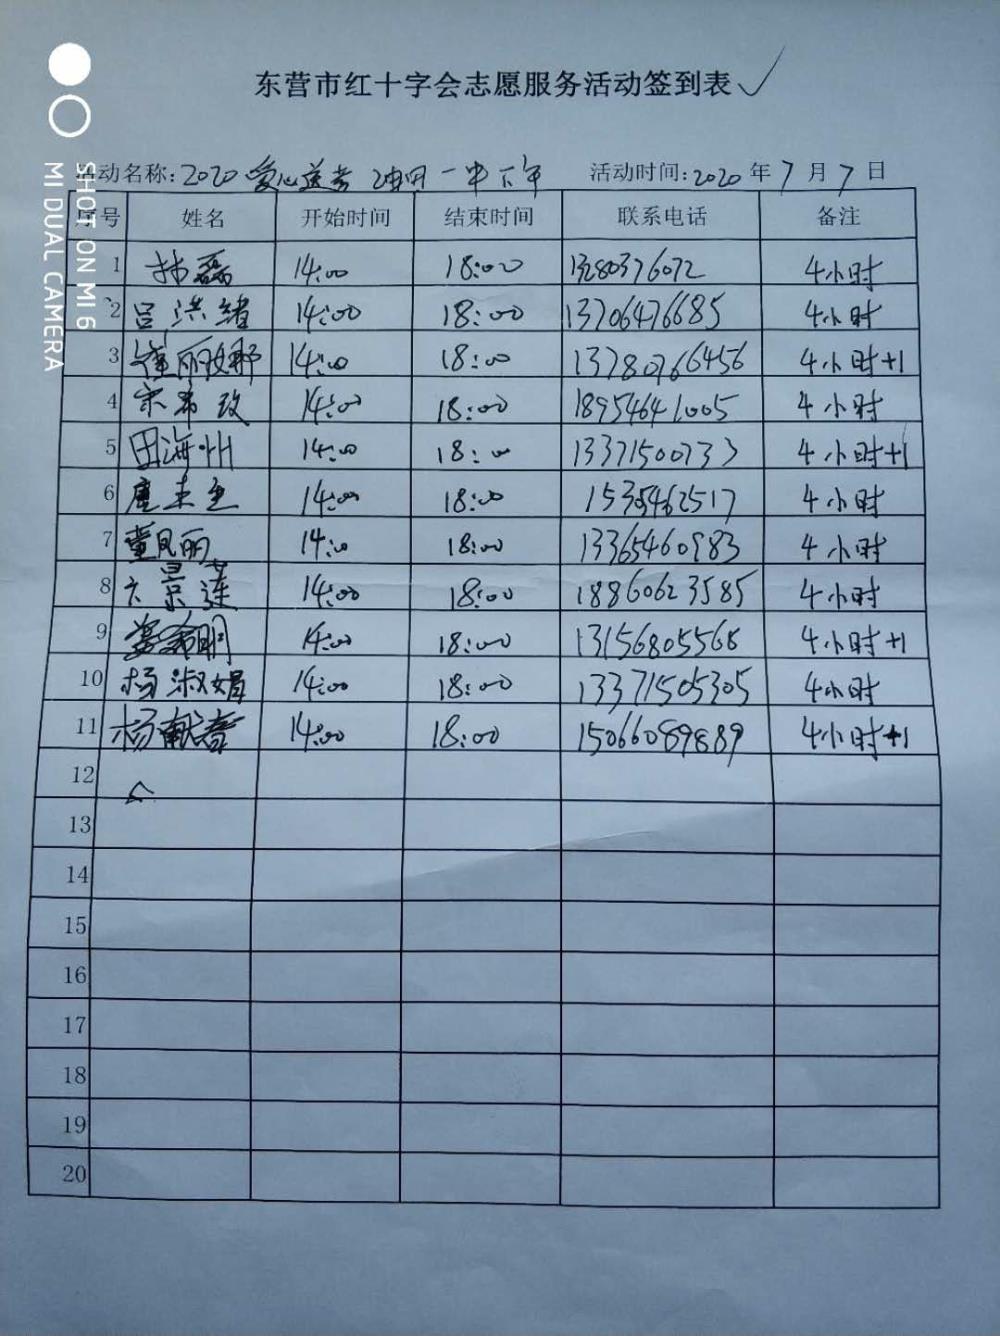 东营市红十字会志愿服务活动签到表✓
活动名称:2020 爱心送考 油田一中下午 活动时间:2020年7月7日
序号 姓名 开始时间 结束时间 联系电话 备注
1 林磊 14:00 18:00 13280376072 4小时
2 吕洪绪 14:00 18:00 13706476685 4小时
3 崔丽娜 14:00 18:00 13780766456 4小时+1
4 宋希玫 14:00 18:00 18954641005 4小时
5 田海州 14:00 18:00 13371500733 4小时+1
6 14:00 18:00 4小时
7 董凤丽 14:00 18:00 13365460983 4小时
8 景莲 14:00 18:00 18860623585 4小时
9 14:00 18:00 13156805568 4小时+1
10 杨淑娟 14:00 18:00 13371505305 4小时
11 杨献春 14:00 18:00 15066089889 4小时+1
12
13
14
15
16
17
18
19
20
SHOT ON MI 6
MI DUAL CAMERA